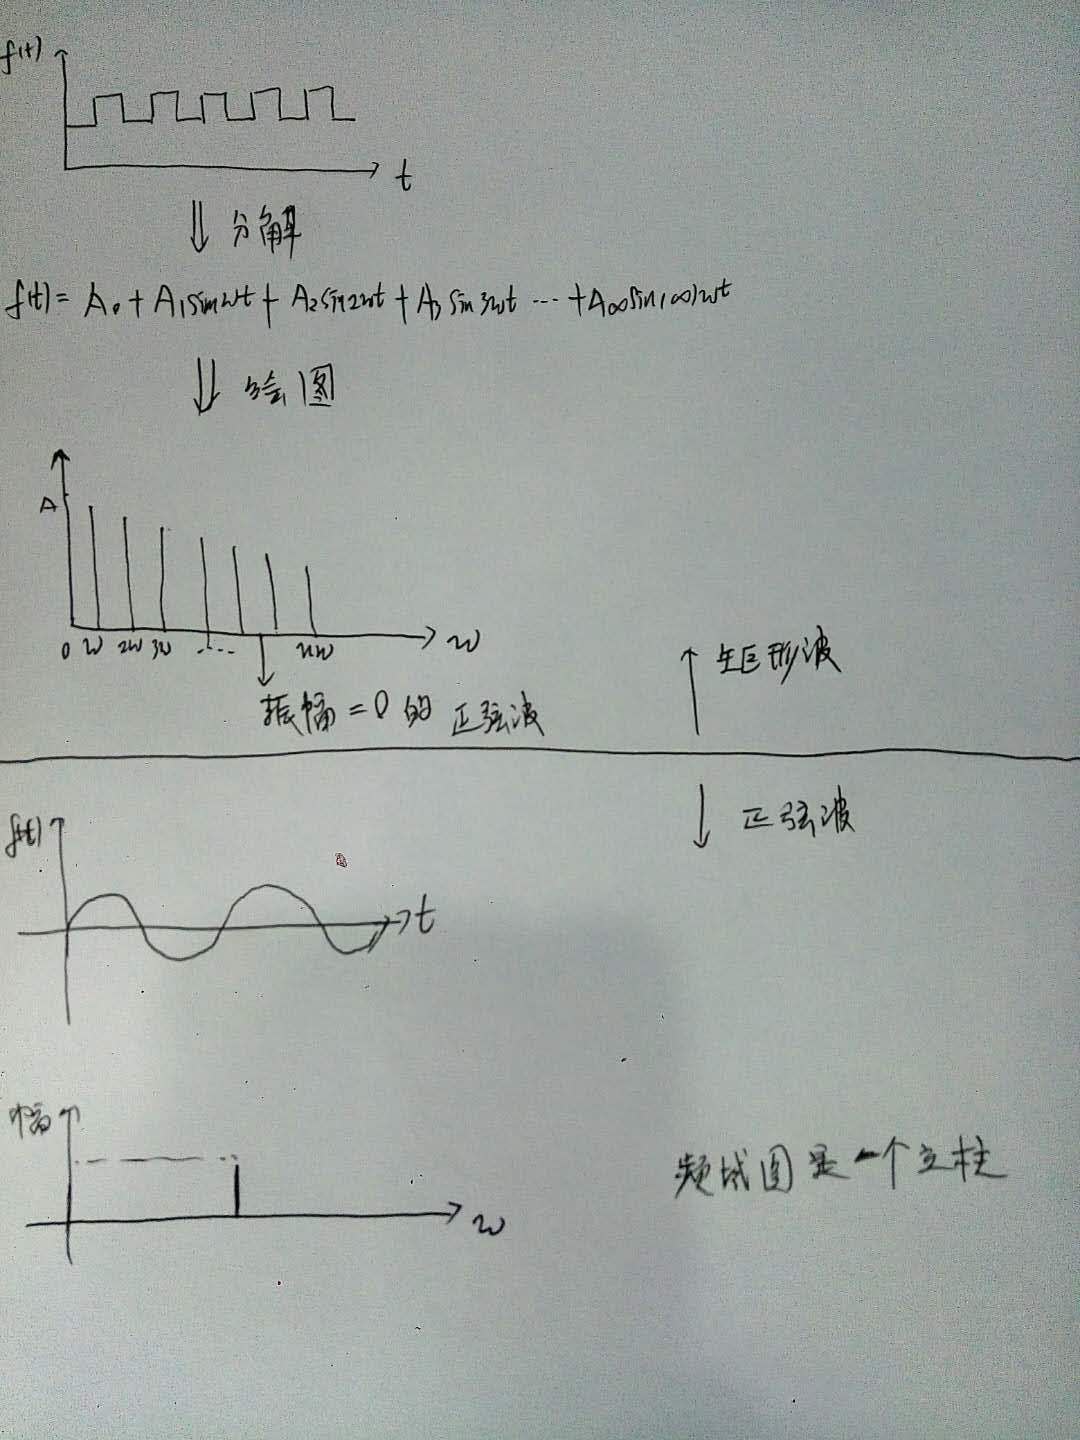 f(t)
t
分解
f(t) = A₀ + A₁sinwt + A₂sin2wt + A₃sin3wt ... + A∞sin(∞)wt
绘图
A
0 w 2w 3w ..... nw
w
振幅=0的正弦波
矩形波
正弦波
f(t)
t
幅
w
频域图是一个立柱